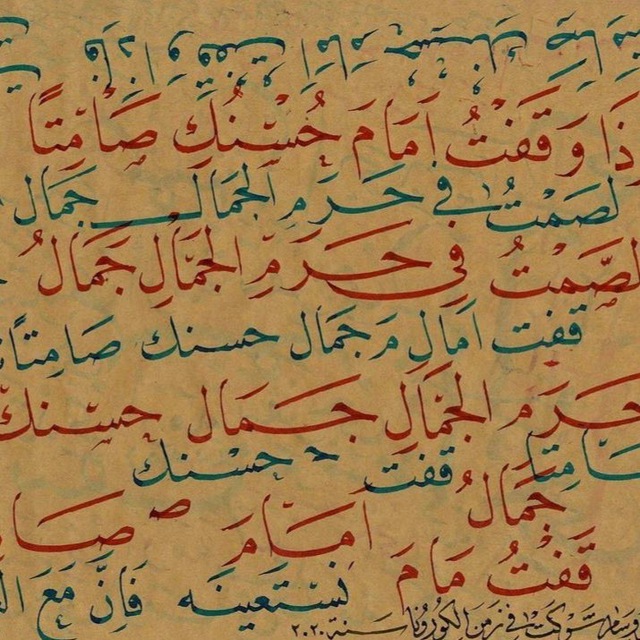 وقفت أمام حسنك صامتا
وَقَفْتُ أَمَامَ حُسْنِكِ صَامِتًا
لصَمْتُ في حَرَمِ الجَمَالِ جَمَال
الصَّمْتُ فِي حَرَمِ الجَمَالِ جَمَالُ
قفت امال مَ جَمَال حسنك صَامِتاً
حَرَمِ الجَمَالِ جَمَال حسنك
صَامِتا قفت حسنك
جَمَالُ
امَامَ صا
قفتُ مَامَ
نستعينه فَإِنَّ مَعَ
في زمن الكورونا سنة ٢٠٢٠